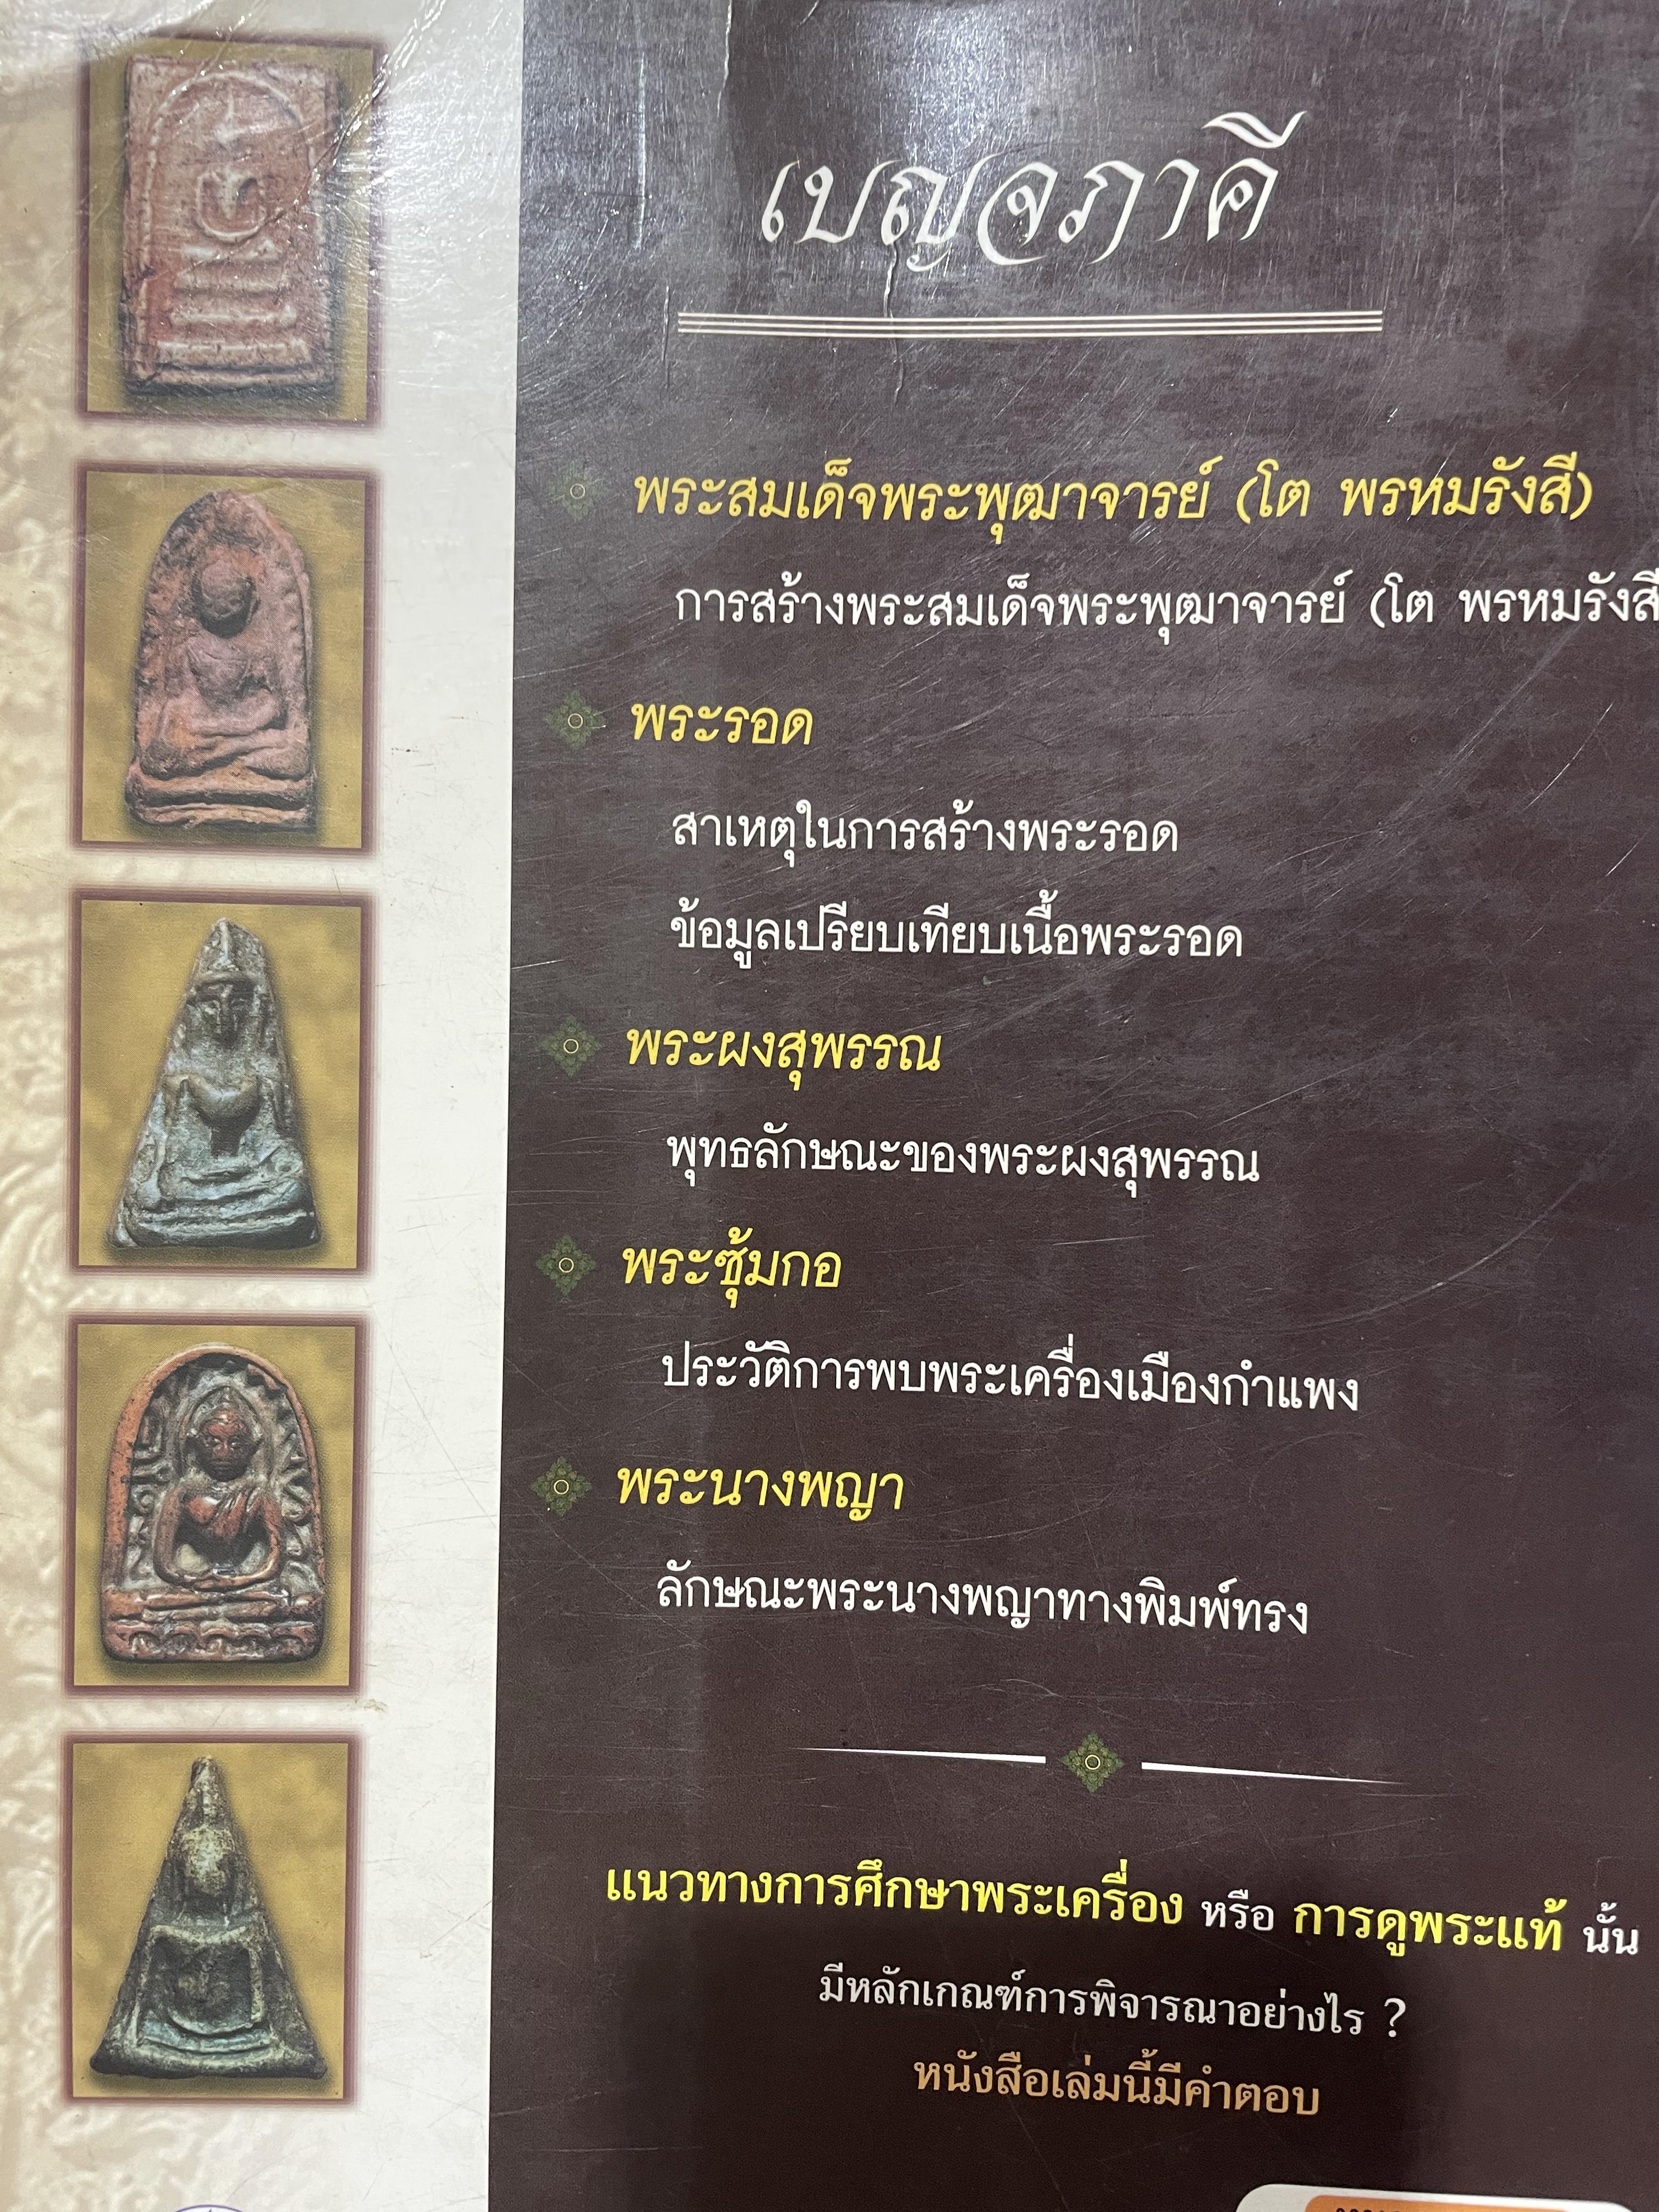 เบญจภาคี
พระสมเด็จพระพุฒาจารย์ (โต พรหมรังสี)
การสร้างพระสมเด็จพระพุฒาจารย์ (โต พรหมรังสี
พระรอด
สาเหตุในการสร้างพระรอด
ข้อมูลเปรียบเทียบเนื้อพระรอด
พระผงสุพรรณ
พุทธลักษณะของพระผงสุพรรณ
พระซุ้มกอ
ประวัติการพบพระเครื่องเมืองกำแพง
พระนางพญา
ลักษณะพระนางพญาทางพิมพ์ทรง
แนวทางการศึกษาพระเครื่อง หรือ การดูพระแท้ นั้น
มีหลักเกณฑ์การพิจารณาอย่างไร ?
หนังสือเล่มนี้มีคำตอบ